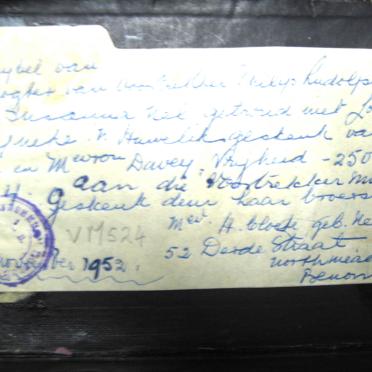 ybel van
ogter van Voortrekker Philip Rudolp
Susanna Nel, getroud met
Huweliksgeskenk va
en Mevrou Davey Vryheid - 250
aan die Voortrekker Mu
Geskenk deur haar broers
Mev. H. Cloete geb. Ne
52 Derde Straat
Northmead
Benon
VM524
November 1952.